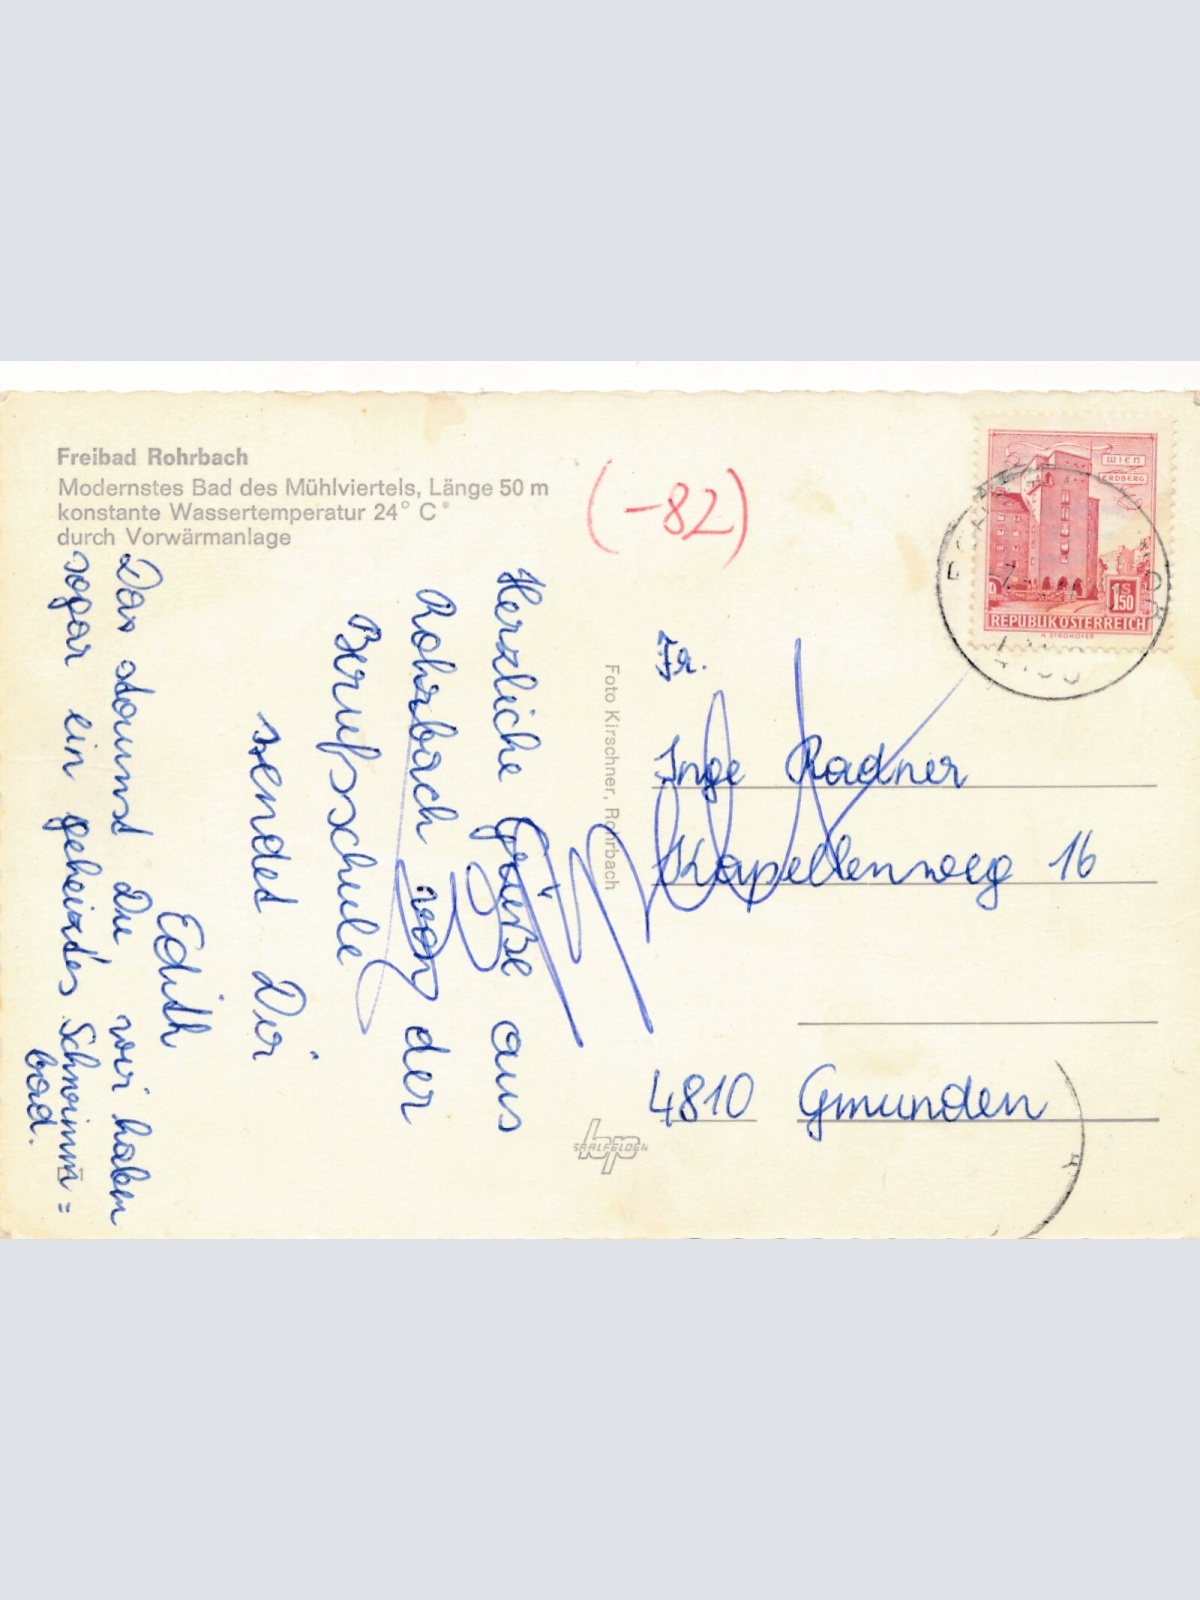 Freibad Rohrbach
Modernstes Bad des Mühlviertels, Länge 50 m
konstante Wassertemperatur 24° C
durch Vorwärmanlage
(-82)
WIEN
ERDBERG
1S50
REPUBLIK ÖSTERREICH
H. STROHOFER
Herzliche Grüße aus
Rohrbach von der
Berufsschule
sendet Dir
Edith
Das staunst Du wir haben
sogar ein geheiztes Schwimm=
bad.
Foto Kirschner, Rohrbach
Fr.
Inge Radner
Kapellenweg 16
4810 Gmunden
hp
SAALFELDEN